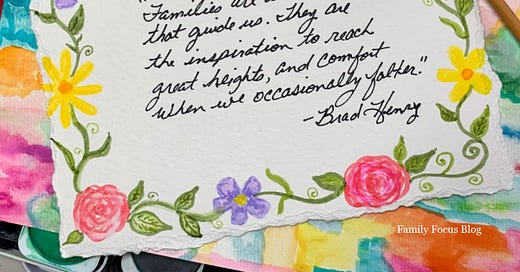 Families are
that guide us. They are
the inspiration to reach
great heights, and comfort
when we occasionally falter."
-Brad Henry
Family Focus Blog